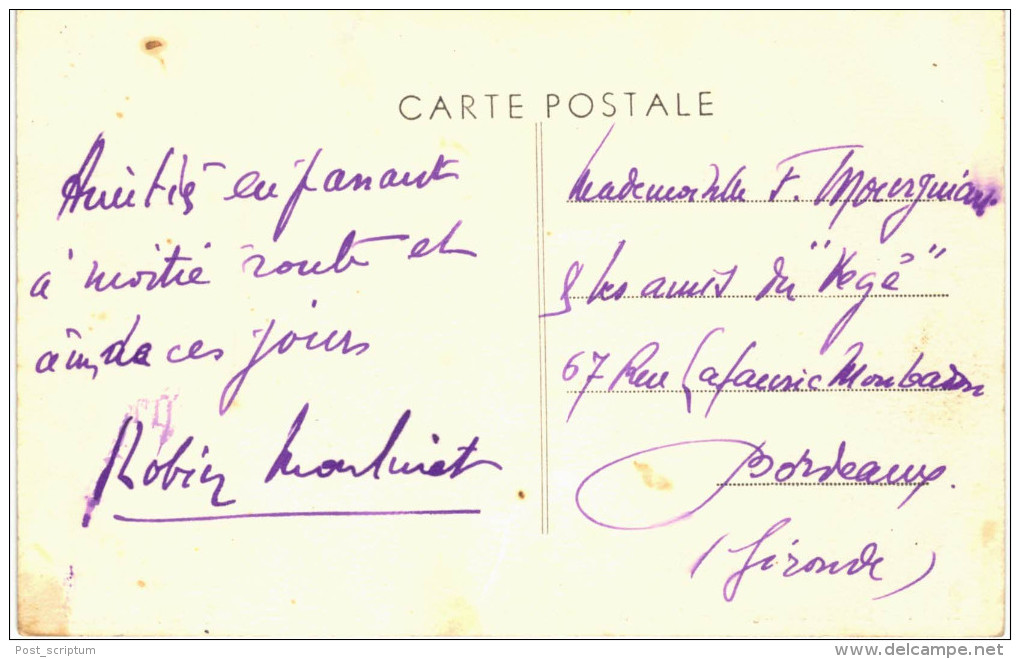 CARTE POSTALE
Amitiés en passant
à moitié route et
à un de ces jours
Robin
Mademoiselle F. Mourguiart
& les amis du "Végé"
67 Rue Lafaurie Monbadon
Bordeaux.
(Gironde)
Post_scriptum
delcampe.net